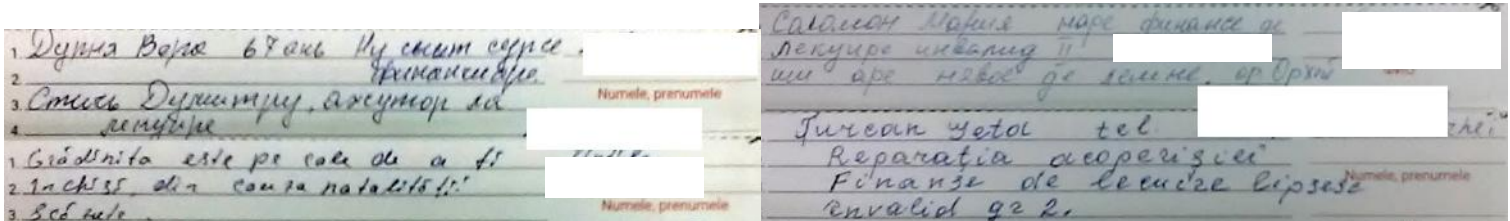 1. Дурня Вера 67 ань Ну сынт сурсе
2. финанчиаре
Numele, prenumele
3. Стись Думитру, ажутор ла
4. лекуире
1. Grădinita este pe cale de a fi
2. Inchisă din cauza natalității
Numele, prenumele
3. Scăzute.
Саламон Мария наре финансе де
лекуире инвалид II
ши аре невое де лемне. ор. Орхей
Țurcan tel.
Reparația acoperișiei
Finanse de lecuire lipsesc
Numele, prenumele
invalid gr 2.